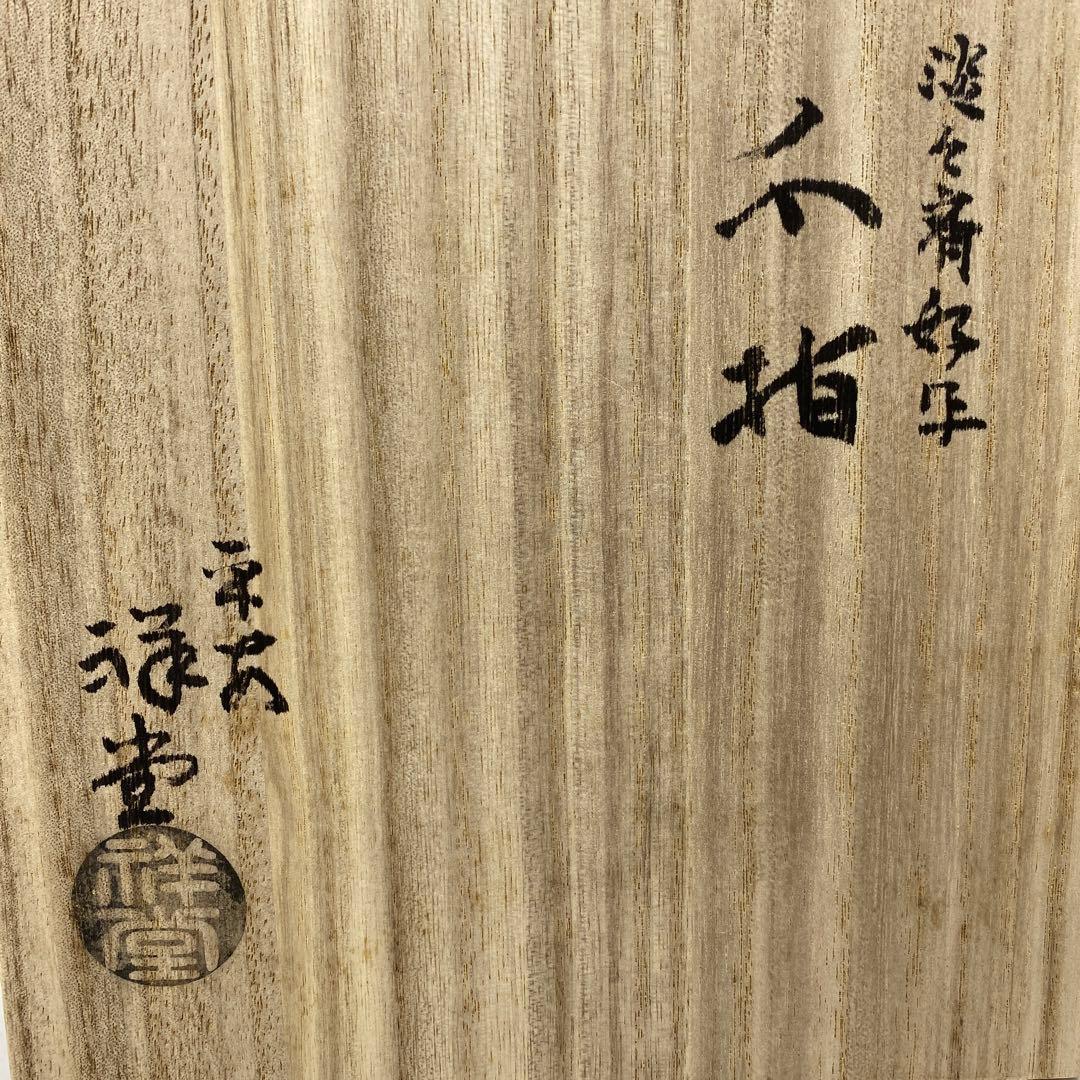 淡々斎好写
水指
平安
祥堂
祥堂